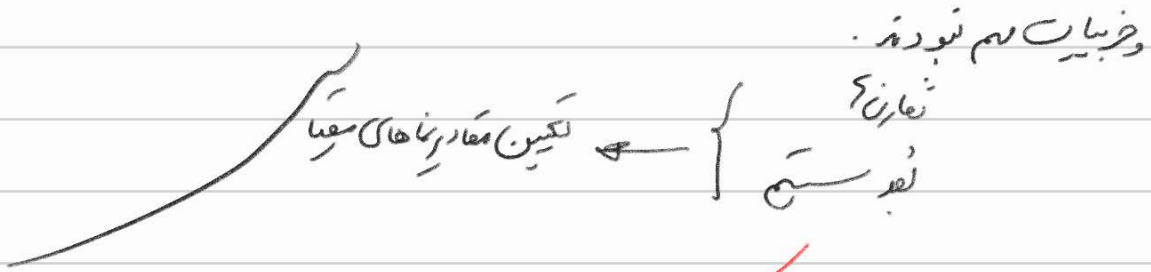 وجزییات مهم نبودند.
تقارن؟
بعد سیستم } ← تعیین مقادیر نماهای مقیاس